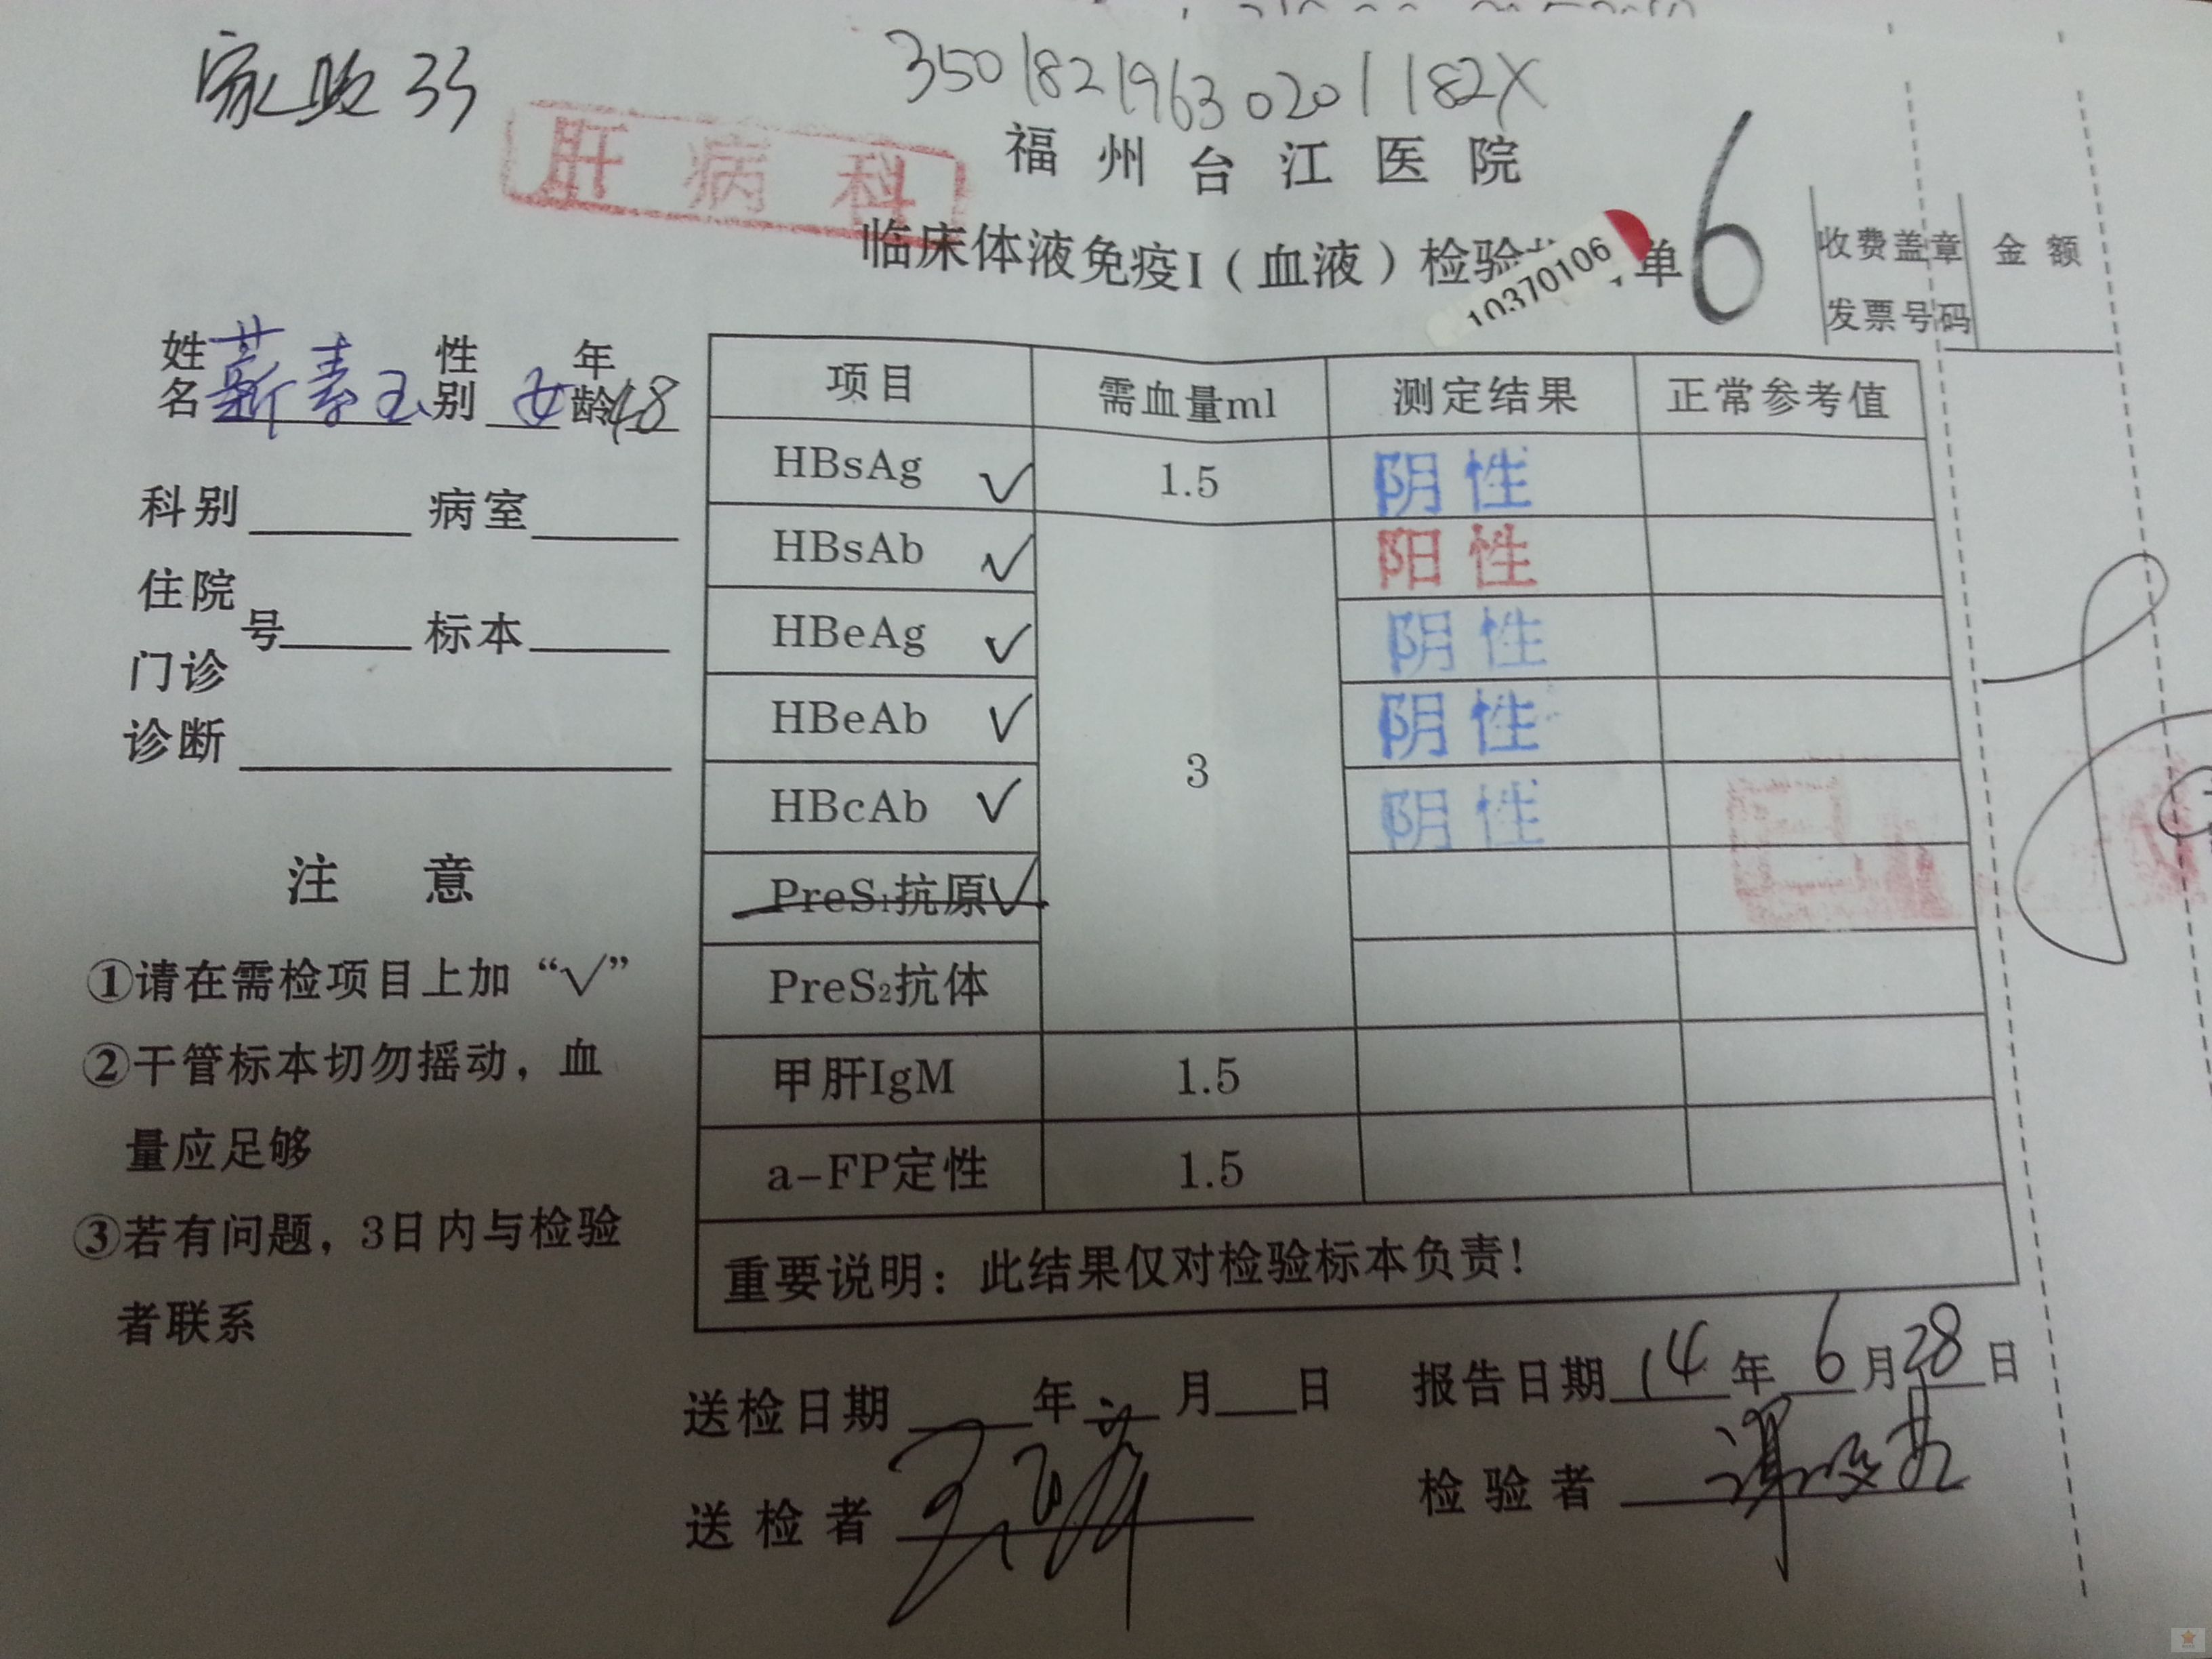 家政33
35018219630201182X
肝病科
福州台江医院
临床体液免疫I（血液）检验 单 6
10370106
收费盖章 金额
发票号码
姓名 素玉 性别 女 年龄 48
科别 病室
住院
号 标本
门诊
诊断
注意
①请在需检项目上加“√”
②干管标本切勿摇动，血
量应足够
③若有问题，3日内与检验
者联系
项目 需血量ml 测定结果 正常参考值
HBsAg √ 1.5 阴性
HBsAb √ 阳性
HBeAg √ 阴性
HBeAb √ 3 阴性
HBcAb √ 阴性
PreS₁抗原 √
PreS₂抗体
甲肝IgM 1.5
a-FP定性 1.5
重要说明：此结果仅对检验标本负责！
送检日期 年 月 日 报告日期 14年 6月28日
送检者 检验者